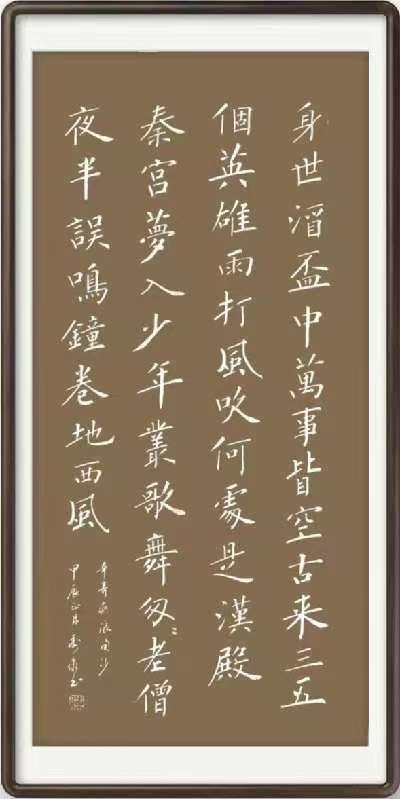 身世酒盃中萬事皆空古来三五
個英雄雨打風吹何處是漢殿
秦宫夢入少年叢歌舞匆〻老僧
夜半誤鳴鐘卷地西風
辛弃疾浪淘沙
甲辰正月